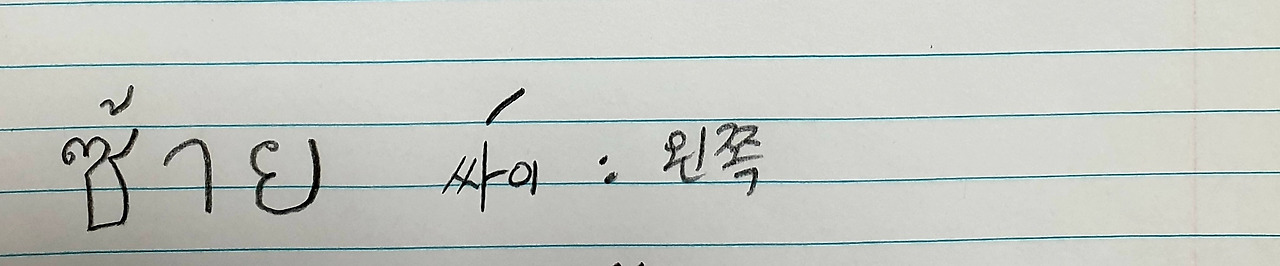 ซ้าย 싸이 : 왼쪽